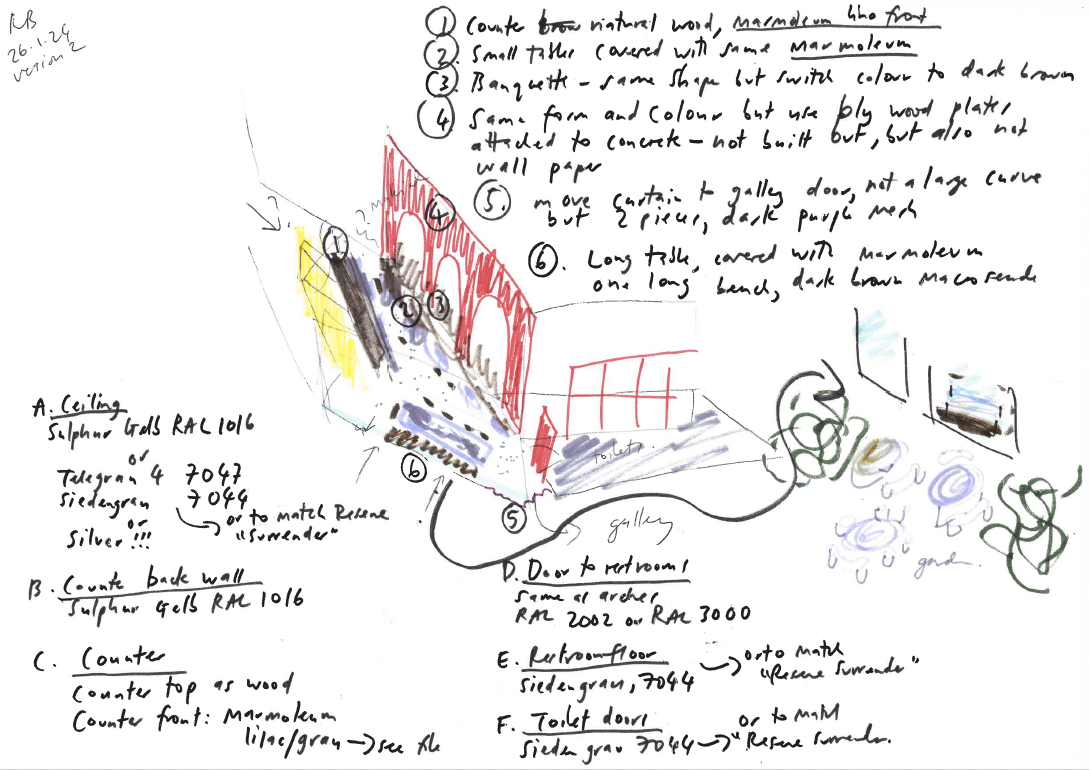 RB
26.1.24
version 2
① Counter natural wood, marmoleum lino front
②. Small tables covered with same marmoleum
③. Banquette - same shape but switch colour to dark brown
④ Same form and colour but use ply wood plates
attached to concrete - not built out, but also not
wall paper
⑤. move curtain to galley door, not a large curve
but 2 pieces, dark purple mesh
⑥. Long table, covered with marmoleum
one long bench, dark brown
?
①
④
②
③
⑥
⑤
toilets
galley
garden
A. Ceiling
Sulphur Gelb RAL 1016
or
Telegrau 4 7047
Siedengrau 7044
or to match Resene
"Surrender"
or
Silver!!!
B. Counte back wall
Sulphur Gelb RAL 1016
C. Counter
Counter top as wood
Counter front: Marmoleum
lilac/grau → see file
D. Door to restrooms
same as arches
RAL 2002 or RAL 3000
E. Restroom floor
Siedengrau, 7044 → or to match
"Resene Surrender"
F. Toilet doors
Sieden grau 7044 → or to match
"Resene Surrender.